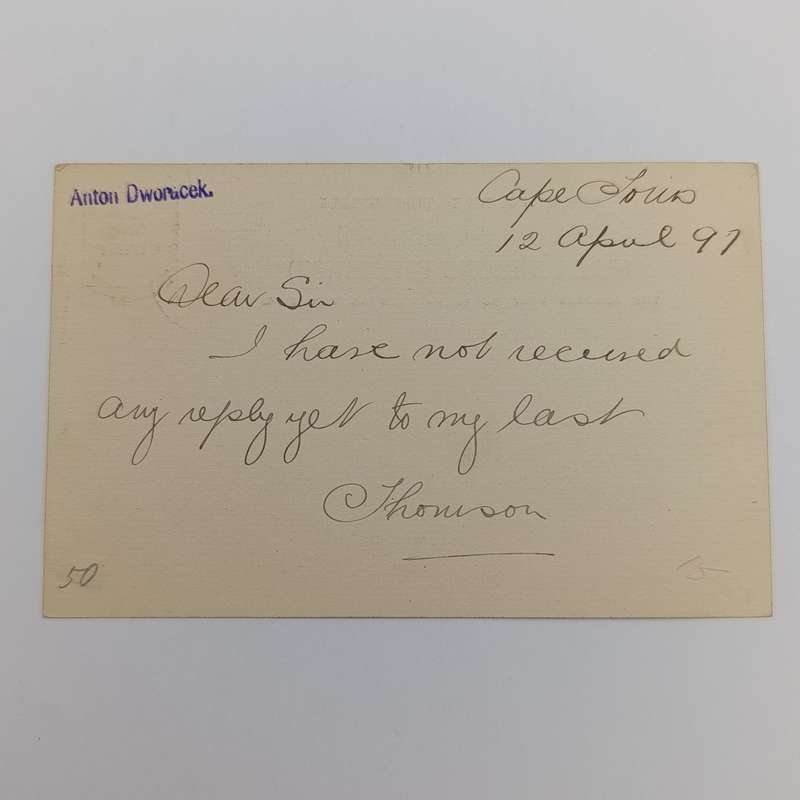 Anton Dworacek.
Cape Town
12 April 97
Dear Sir
I have not received
any reply yet to my last
Thomson
50
15